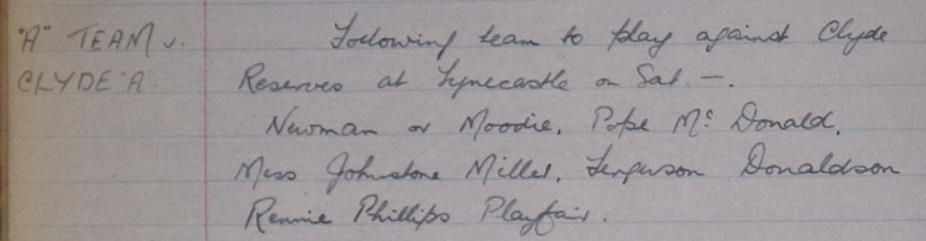 "A" TEAM v. Following team to play against Clyde
CLYDE "A" Reserves at Tynecastle on Sat. —.
Newman or Moodie, Pope Mc Donald,
Mess Johnstone Miller, Ferguson Donaldson
Rennie Phillips Playfair.